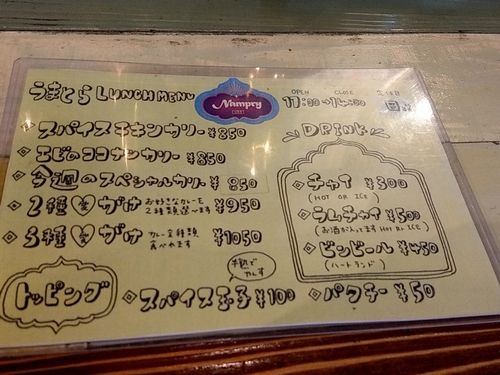 うまとら LUNCH MENU
Numpry
OPEN CLOSE 定休日
11:00→14:00
スパイスチキンカリー ¥850
エビのココナツカリー ¥850
今週のスペシャルカリー ¥850
2種♡がけ お好きなカレーを2種類選べます ¥950
3種♡がけ カレー全種類食べれます ¥1050
DRINK
チャイ ¥300
(HOT OR ICE)
ラムチャイ ¥500
(お酒が入ってます HOT OR ICE)
ビンビール ¥450
(ハートランド)
トッピング
半熟でカレーす
スパイス玉子 ¥100
パクチー ¥50